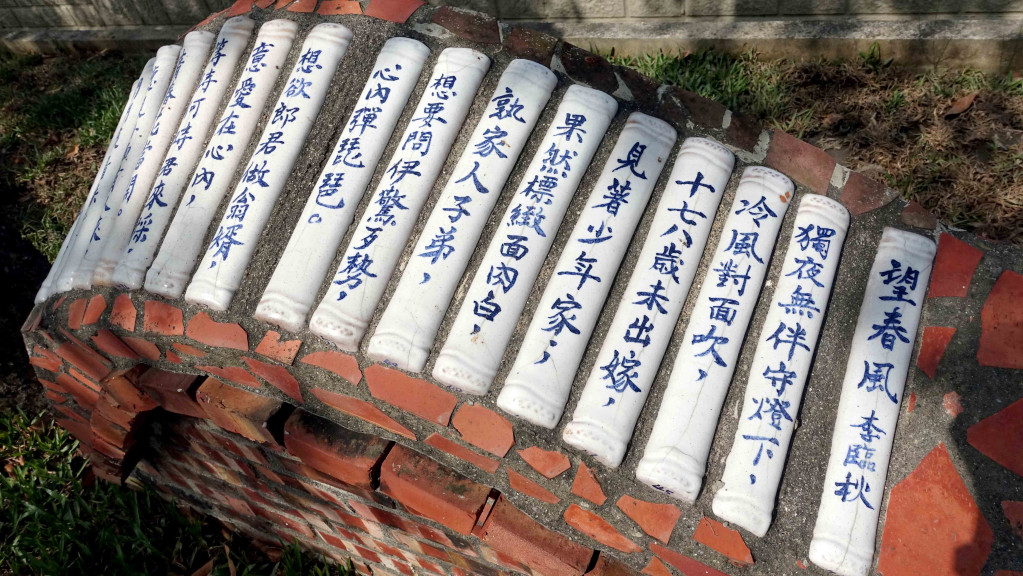 望春風 李臨秋
獨夜無伴守燈下，
冷風對面吹，
十七八歲未出嫁，
見著少年家，
果然標緻面肉白，
孰家人子弟，
想要問伊驚歹勢，
心內彈琵琶。
想欲郎君做翁婿，
意愛在心內，
等待何時君來採，